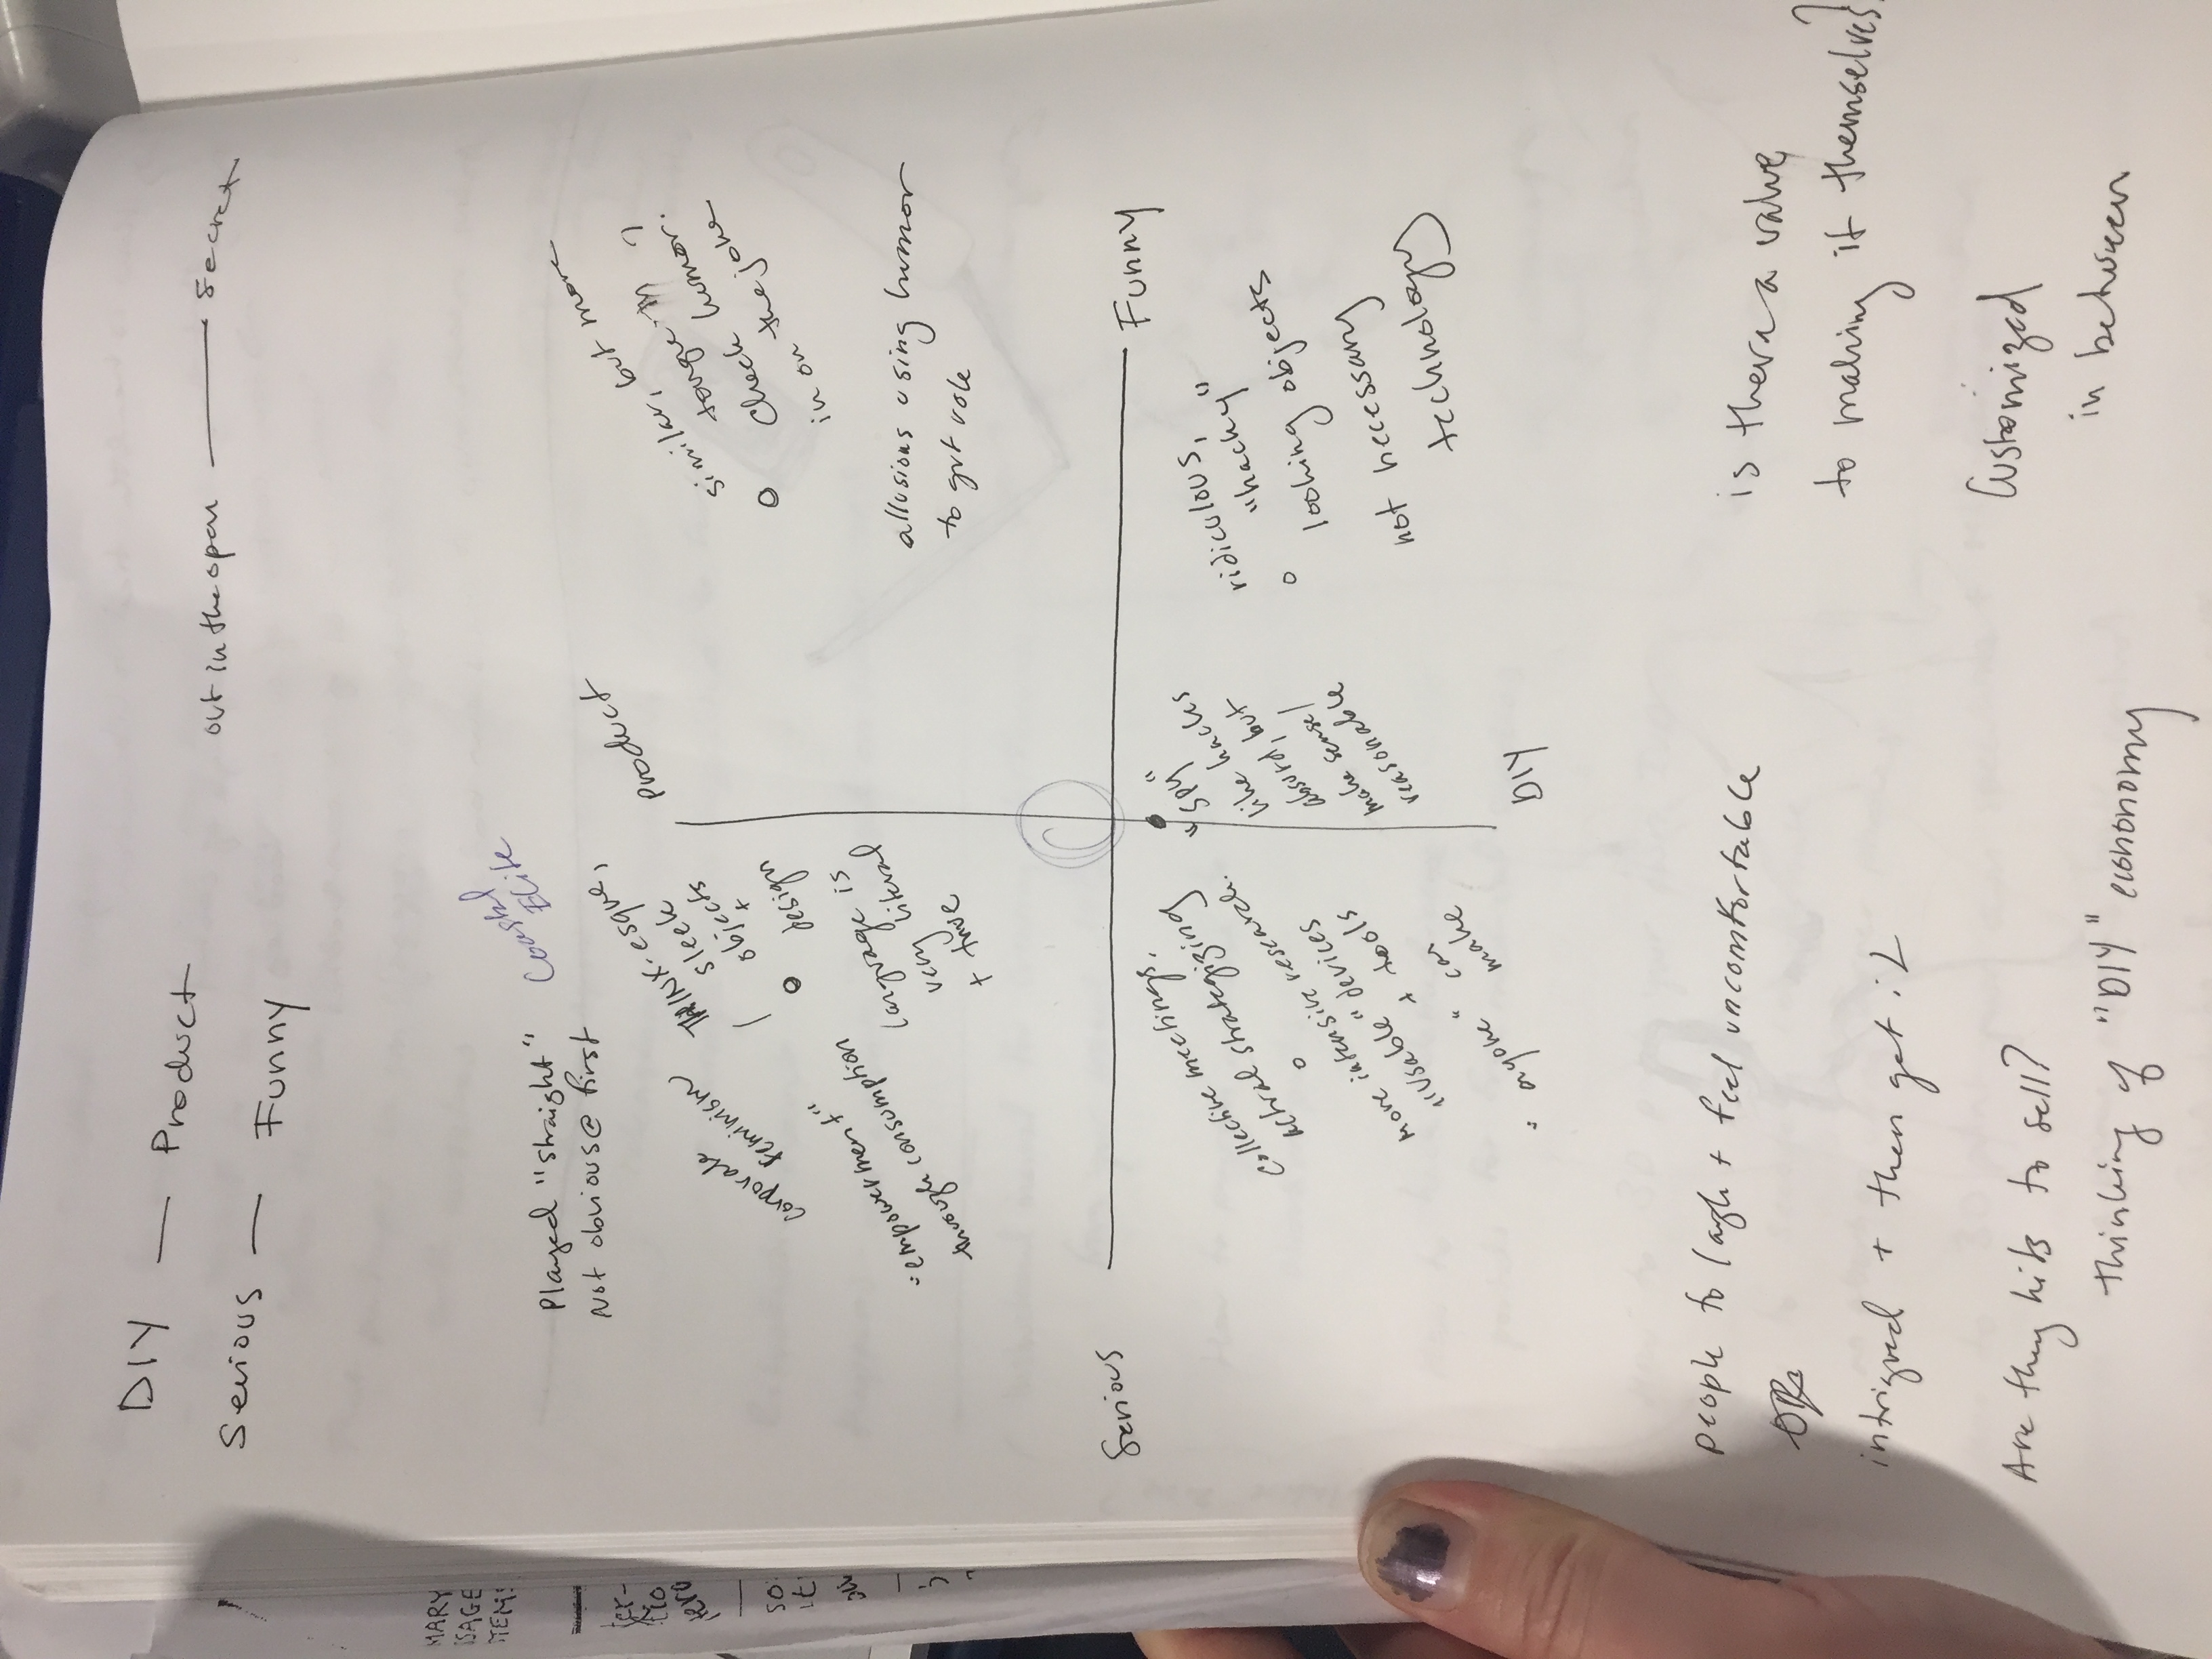 DIY — Product
Serious — Funny
out in the open — Secret
Played "straight"
Not obvious @ first
Coastal
Elite
corporate
feminism
"empowerment"
through consumption
THINX-esque,
sleek
objects
+
design
language is
very literal
+ true
Product
similar, but more
tongue in
check humor?
in on the joke
allusions using humor
to gvt role
Serious
Funny
collective meetings,
actual strategizing
more intensive research.
"Usable" devices
+ tools
"anyone" can
make
"Spy"
like hacks
absurd, but
make sense/
reasonable
ridiculous,
"hacky"
looking objects
not necessary
technology
DIY
people to laugh + feel uncomfortable
OR
intrigued + then get it
Are they kits to sell?
thinking of "DIY" econonomy
is there a value
to making it themselves?
Customized
in between
MARY
SAGE
TEMS